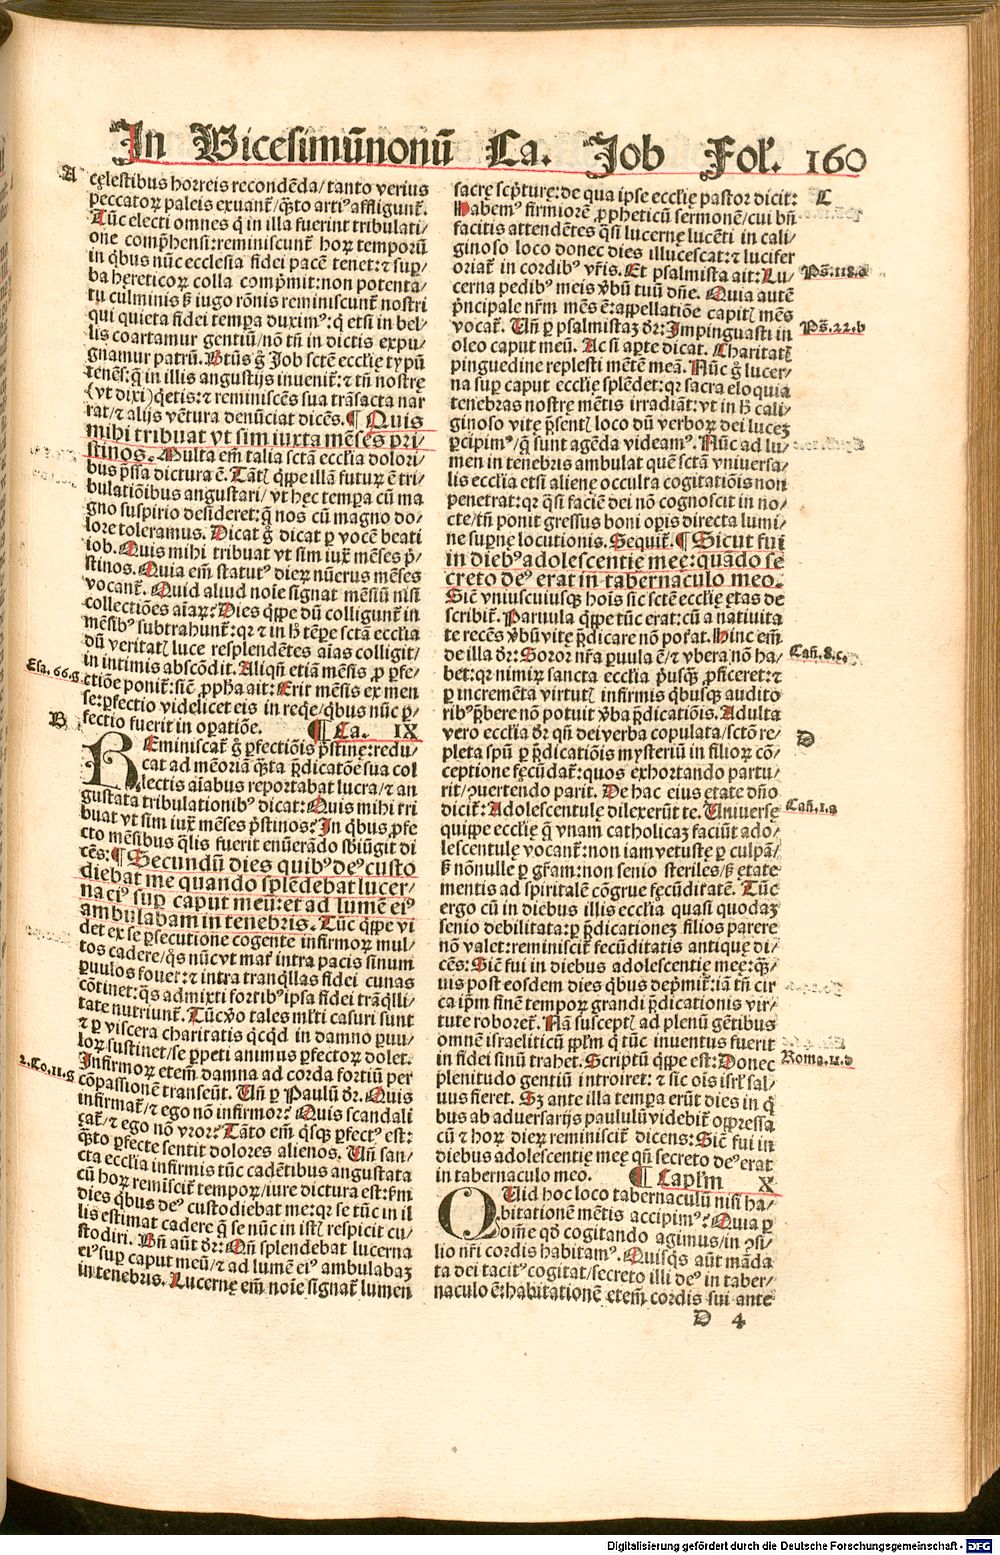 In Vicesimūnonū Ca. Job Fol'. 160
A
cęlestibus horreis recondēda/tanto verius
peccatoꝝ paleis exuant̄/q̄ᷓto arti⁹ affligunt̄.
Tūc electi omnes q̄ in illa fuerint tribulati/
one comp̄hensi:reminiscunt̄ hoꝝ temporū
in q̇bus nūc ecclesia fidei pacē tenet:⁊ suꝑ/
ba hęreticoꝝ colla comp̄mit:non potenta/
tu culminis ß iugo rōnis reminiscunt̄ nostri
qui quieta fidei tempa duxim⁹:q̄ etsi in bel/
lis coartamur gentiū/nō tn̄ in dictis expu/
gnamur patrū. Btūs g̊ Job scte̅ ecclię typū
tenēs:q̄ in illis angustijs inuenit̄:⁊ tn̄ nostrę
(vt dixi)q̇etis:⁊ reminiscēs sua trāsacta nar
rat/⁊ alijs vētura denūciat dicēs. ¶ Quis
mihi tribuat vt sim iuxta mēses pri/
stinos. Multa em̄ talia sctā ecclia dolori/
bus p̄ssa dictura ē. Tātꝭ q̇ppe illā futuꝝ ē tri/
bulatiōibus angustari/vt hęc tempa cū ma
gno suspirio desideret:q̄ nos cū magno do/
lore toleramus. Dicat g̊ dicat ꝑ vocē beati
iob. Quis mihi tribuat vt sim iux̄ mēses p̄/
stinos. Quia em̄ statut⁹ dieꝝ nūerus mēses
vocant̄. Quid aliud noīe signat mēsiū nisi
collectiōes aīaꝝ? Dies q̇ppe dū colligunt̄ in
mēsib⁹ subtrahunt̄:qꝛ ⁊ in h̊ tēꝑe sctā ecclia
dū veritatꝭ luce resplendētes aīas colligit/
in intimis abscōdit. Aliqn̄ etiā mēsis ꝓ ꝑfe/
ctiōe ponit̄:sic̄ ꝓpħa ait: Erit mēsis ex men
se:ꝑfectio videlicet eis in req̇e/q̇bus nūc ꝑ/
fectio fuerit in opatiōe. ¶ Ca. IX
Esa. 66.g
B
REminiscat̄ g̊ ꝑfectiōis p̄stinę:redu/
cat ad mēoriā q̄ᷓta p̄dicatōe sua col
lectis aīabus reportabat lucra/⁊ an
gustata tribulationib⁹ dicat: Quis mihi tri
buat vt sim iux̄ mēses p̄stinos? In q̇bus ꝑfe
cto mēsibus q̄lis fuerit enūerādo sbiūgit di
cēs: ¶ Secundū dies quib⁹ de⁹ custo
diebat me quando splēdebat lucer/
na ei⁹ suꝑ caput meū:et ad lumē ei⁹
ambulabam in tenebris. Tūc q̇ppe vi
det ex se ꝑsecutione cogente infirmoꝝ mul/
tos cadere/q̇s nūcvt mat̄ intra pacis sinum
ꝑuulos fouet:⁊ intra tranq̇llas fidei cunas
cōtinet:q̇s admixti fortib⁹ipsa fidei trāq̇lli/
tate nutriunt̄. Tūcv̊o tales ml̄ti casuri sunt
⁊ ꝑ viscera charitatis q̇cq̇d in damno ꝑuu/
loꝝ sustinet/se ꝑpeti animus ꝑfectoꝝ dolet.
Infirmoꝝ etem̄ damna ad corda fortiū per
cōpassionē transeūt. Un̄ ꝑ Paulū dr̄. Quis
infirmat̄/⁊ ego nō infirmor? Quis scandali
ȝat̄/⁊ ego nō vror? Tāto em̄ q̇sq̧ ꝑfect⁹ est:
q̄ᷓto ꝑfecte sentit dolores alienos. Un̄ san/
cta ecclia infirmis tūc cadētibus angustata
cū hoꝝ remiscit̄ tempoꝝ/iure dictura est:sm̄
dies q̇bus de⁹ custodiebat me:qꝛ se tūc in il
lis estimat cadere q̄ se nūc in istꝭ respicit cu/
stodiri. Bn̄ aūt dr̄: Qn̄ splendebat lucerna
ei⁹suꝑ caput meū/⁊ ad lumē ei⁹ ambulabaȝ
in tenebris. Lucernę em̄ noīe signat̄ lumen
2.Co.11.g
sacrę scp̄turę:de qua ipse ecclię pastor dicit:
Habem⁹ firmiorē ꝓpheticū sermonē/cui bn̄
facitis attendētes q̄si lucernę lucēti in cali/
ginoso loco donec dies illucescat:⁊ lucifer
oriat̄ in cordib⁹ vr̄is. Et psalmista ait: Lu/
cerna pedib⁹ meis v̊bū tuū dn̄e. Quia autē
p̄ncipale nr̄m mēs ē:appellatiōe capitꝭ mēs
vocat̄. Un̄ ꝑ psalmistaȝ dr̄: Impinguasti in
oleo caput meū. Ac si aꝑte dicat. Charitatꝭ
pinguedine replesti mētē meā. Nūc g̊ lucer/
na suꝑ caput ecclię splēdet:qꝛ sacra eloquia
tenebras nostrę mētis irradiāt:vt in h̊ cali/
ginoso vitę p̄sentꝭ loco dū verboꝝ dei luceȝ
ꝑcipim⁹/q̄ sunt agēda videam⁹. Nūc ad lu/
men in tenebris ambulat quē sctā vniuersa/
lis ecclia etsi alienę occulta cogitatiōis non
penetrat:qꝛ q̄si faciē dei nō cognoscit in no/
cte/tn̄ ponit gressus boni opis directa lumi/
ne suꝑnę locutionis. Sequit̄. ¶ Sicut fui
in dieb⁹ adolescentię meę:quādo se
creto de⁹ erat in tabernaculo meo.
Sic̄ vniuscuiusq̧ hoīs sic scte̅ ecclię ętas de
scribit̄. Paruula q̇ppe tūc erat:cū a natiuita
te recēs v̊bū vitę p̄dicare nō poťat. Hinc em̄
de illa dr̄: Soror nr̄a ꝑuula ē/⁊ vbera nō ha/
bet:qꝛ nimiꝝ sancta ecclia p̄usq̄ᷓ ꝓficeret:⁊
ꝑ incremēta virtutꝭ infirmis q̇busq̧ audito
rib⁹ p̄bere nō potuit v̊ba p̄dicatiōis. Adulta
vero ecclia dr̄ qn̄ dei verba copulata/sctō re/
pleta spū ꝑ p̄dicatiōis mysteriū in filioꝝ cō/
ceptione fęcūdat̄:quos exhortando partu/
rit/ꝯuertendo parit. De hac eius ętate dn̄o
dicit̄: Adolescentulę dilexerūt te. Uniuersę
quippe ecclię q̄ vnam catholicaȝ faciūt ado/
lescentulę vocant̄:non iam vetustę ꝑ culpā/
ß nōnulle ꝑ gr̄am:non senio steriles/ß ętate
mentis ad spiritalē cōgrue fęcūditatē. Tūc
ergo cū in diebus illis ecclia quasi quodaȝ
senio debilitata:ꝑ p̄dicationeȝ filios parere
nō valet:reminiscit̄ fecūditatis antiquę di/
cēs: Sic̄ fui in diebus adolescentię meę:q̄ᷓ/
uis post eosdem dies q̇bus dep̄mit̄:iā tn̄ cir
ca ip̄m finē tempoꝝ grandi p̄dicationis vir/
tute roboret̄. Nā susceptꝭ ad plenū gētibus
omnē israeliticū pplm̄ q̄ tūc inuentus fuerit
in fidei sinū trahet. Scriptū q̇ppe est: Donec
plenitudo gentiū introiret: ⁊ sic oīs isrl̄ sal/
uus fieret. Sȝ ante illa tempa erūt dies in q̇
bus ab aduersarijs paululū videbit̄ oppressa
cū ⁊ hoꝝ dieꝝ reminiscit̄ dicens: Sic̄ fui in
diebus adolescentię meę qn̄ secreto de⁹ erat
in tabernaculo meo. ¶ Caplm̄ X
QUid hoc loco tabernaculū nisi ha/
bitationē mētis accipim⁹? Quia ꝑ
om̄e qd̄ cogitando agimus/in ꝯsi/
lio nr̄i cordis habitam⁹. Quisq̇s aūt māda
ta dei tacit⁹ cogitat/secreto illi de⁹ in taber/
naculo ē:habitationē etem̄ cordis sui ante
C
Ps̄.118.d
Ps̄.22.b
Cañ.8.c
D
Cañ.1.a
Roma.11.d
D 4
Digitalisierung gefördert durch die Deutsche Forschungsgemeinschaft - DFG